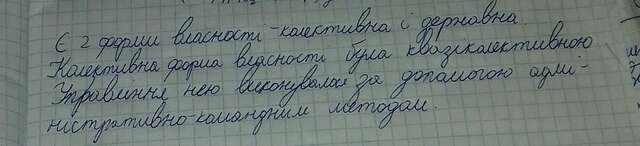 Є 2 форми власности - колективна і державна
Колективна форма власности була квазіколективною
Управління нею виконувалось за допомогою адмі-
ністративно-командним методам.